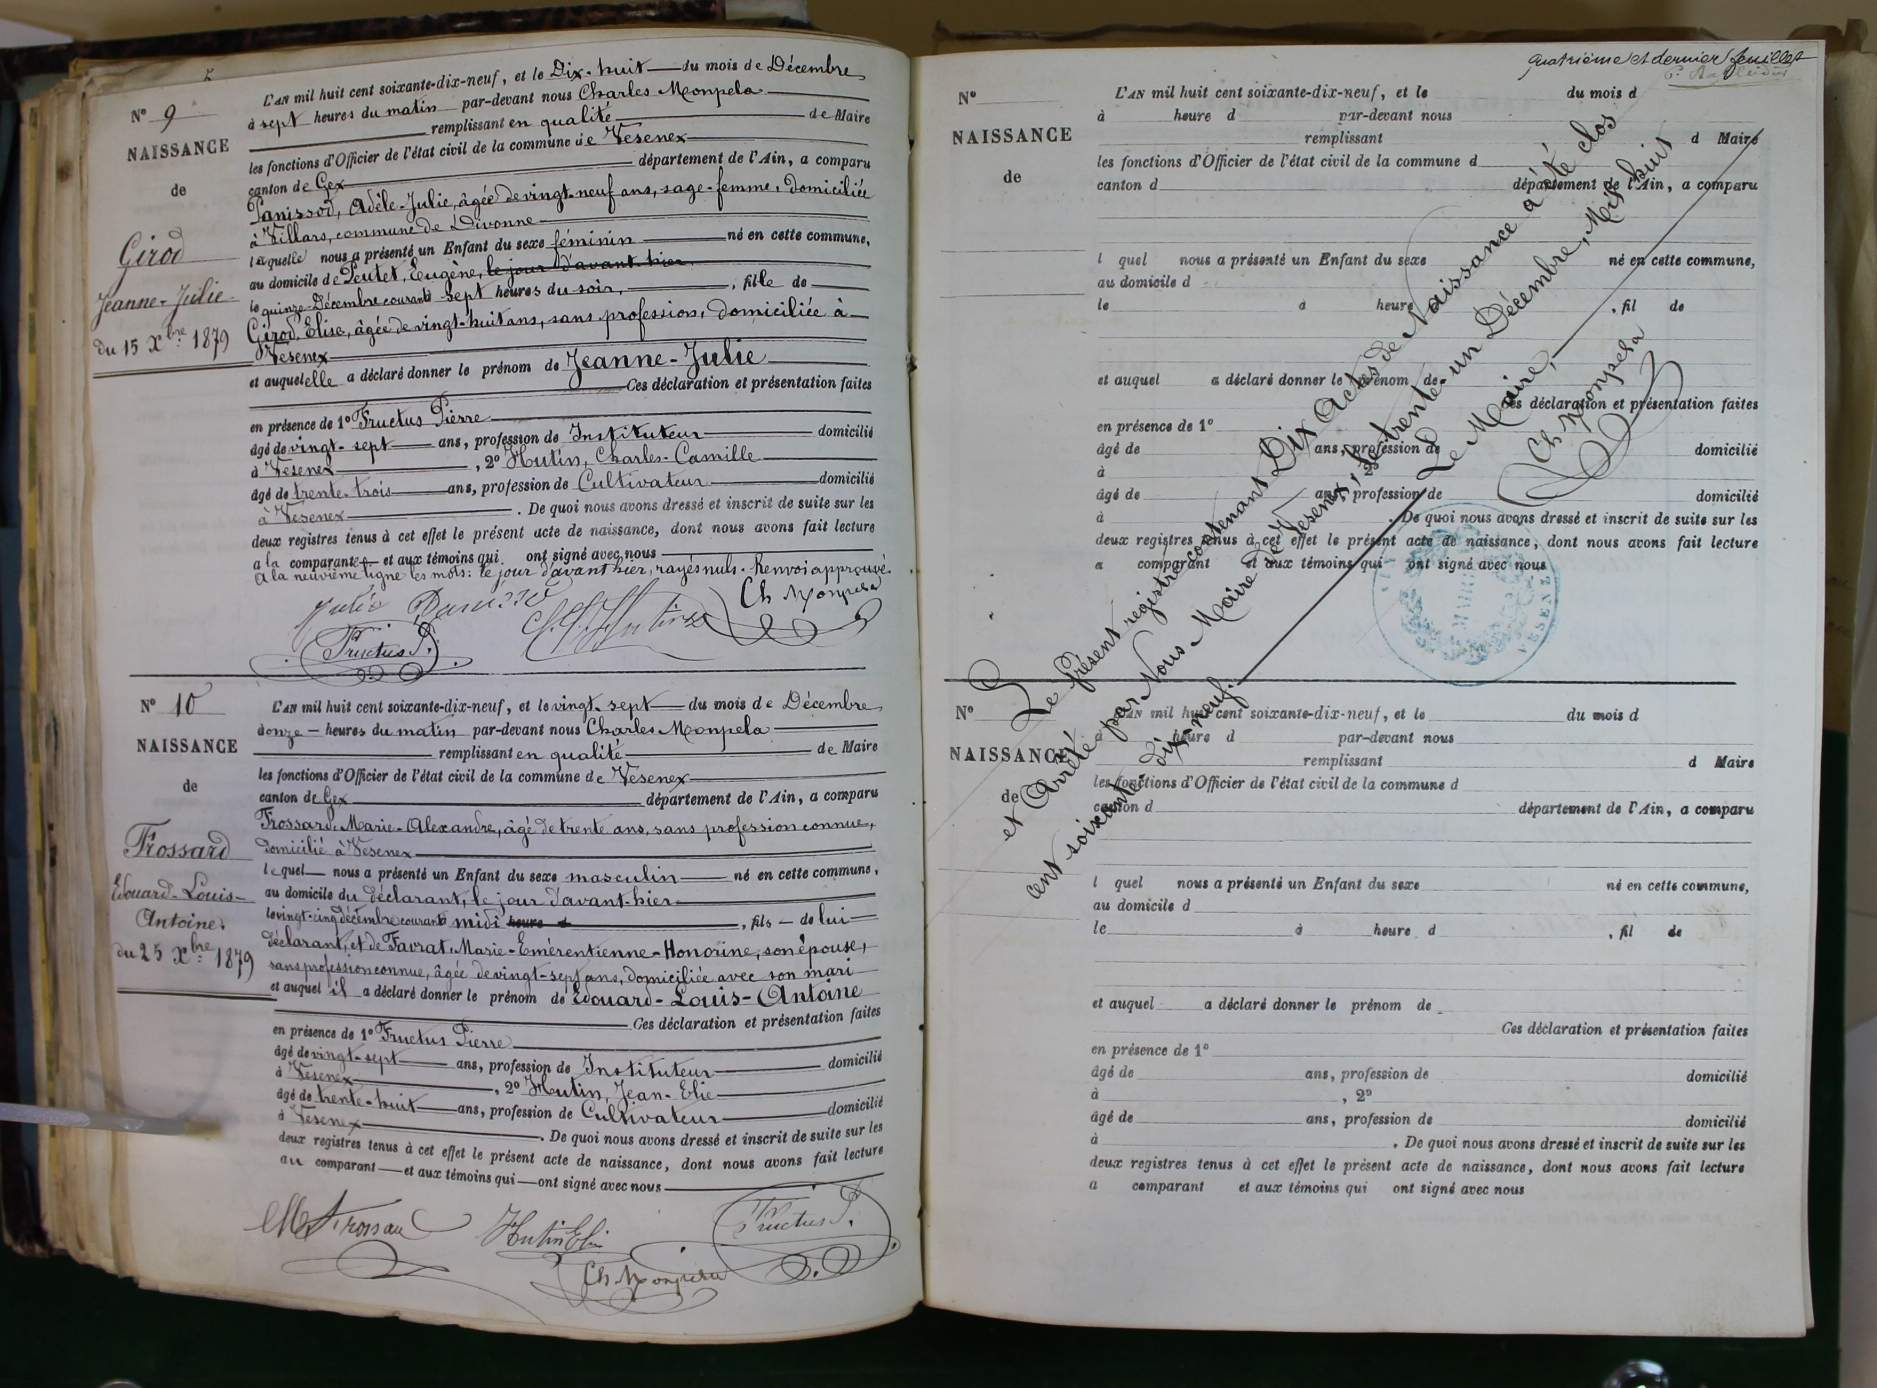 N° 9
NAISSANCE
de
Girod
Jeanne-Julie
du 15 Xbre 1879
L'AN mil huit cent soixante-dix-neuf, et le Dix-huit du mois de Décembre
à sept heures du matin par-devant nous Charles Monpela
remplissant en qualité de Maire
les fonctions d'Officier de l'état civil de la commune de Vesenex
canton de Gex département de l'Ain, a comparu
Panissod, Adèle-Julie, âgée de vingt-neuf ans, sage-femme, domiciliée
à Villars, commune de Divonne
laquelle nous a présenté un Enfant du sexe féminin né en cette commune,
au domicile de Peutet, Eugène, le jour d'avant hier
le quinze Décembre courant à sept heures du soir, , fille de
Girod, Elise, âgée de vingt-huit ans, sans profession, domiciliée à
Vesenex
et auquel elle a déclaré donner le prénom de Jeanne-Julie
Ces déclaration et présentation faites
en présence de 1° Fructus Pierre
âgé de vingt-sept ans, profession de Instituteur domicilié
à Vesenex , 2° Hutin, Charles-Camille
âgé de trente-trois ans, profession de Cultivateur domicilié
à Vesenex . De quoi nous avons dressé et inscrit de suite sur les
deux registres tenus à cet effet le présent acte de naissance, dont nous avons fait lecture
a la comparante et aux témoins qui ont signé avec nous
A la neuvième ligne les mots: le jour d'avant hier, rayés nuls. Renvoi approuvé.
Julie Panissod
Hutin
Ch Monpela
Fructus P.
N° 10
NAISSANCE
de
Frossard
Edouard-Louis-
Antoine
du 25 Xbre 1879
L'AN mil huit cent soixante-dix-neuf, et le vingt-sept du mois de Décembre
à onze heures du matin par-devant nous Charles Monpela
remplissant en qualité de Maire
les fonctions d'Officier de l'état civil de la commune de Vesenex
canton de Gex département de l'Ain, a comparu
Frossard, Marie-Alexandre, âgé de trente ans, sans profession connue,
domicilié à Vesenex
lequel nous a présenté un Enfant du sexe masculin né en cette commune,
au domicile du déclarant, le jour d'avant-hier
le vingt-cinq décembre courant à midi heure d , fils de lui
déclarant, et de Favrat, Marie-Emérentienne-Honorine, son épouse,
sans profession connue, âgée de vingt-sept ans, domiciliée avec son mari
et auquel il a déclaré donner le prénom de Edouard-Louis-Antoine
Ces déclaration et présentation faites
en présence de 1° Fructus Pierre
âgé de vingt-sept ans, profession de Instituteur domicilié
à Vesenex , 2° Hutin, Jean-Elie
âgé de trente-huit ans, profession de Cultivateur domicilié
à Vesenex . De quoi nous avons dressé et inscrit de suite sur les
deux registres tenus à cet effet le présent acte de naissance, dont nous avons fait lecture
au comparant et aux témoins qui ont signé avec nous
M A Frossard
Hutin Elie
Fructus P.
Ch Monpela
Quatrième et dernier feuillet
N°
NAISSANCE
de
L'AN mil huit cent soixante-dix-neuf, et le du mois d
à heure d par-devant nous
remplissant d Maire
les fonctions d'Officier de l'état civil de la commune d
canton d département de l'Ain, a comparu
l quel nous a présenté un Enfant du sexe né en cette commune,
au domicile d
le à heure , fil de
et auquel a déclaré donner le prénom de
Ces déclaration et présentation faites
en présence de 1°
âgé de ans, profession de domicilié
à , 2°
âgé de ans, profession de domicilié
à . De quoi nous avons dressé et inscrit de suite sur les
deux registres tenus à cet effet le présent acte de naissance, dont nous avons fait lecture
a comparant et aux témoins qui ont signé avec nous
Le présent registre contenant Dix Actes de Naissance a été clos
et Arrêté par Nous Maire de Vesenex, le trente-un Décembre, Mil huit
cent soixante-dix-neuf.
Le Maire,
Ch Monpela
MAIRIE
VESENEX
N°
NAISSANCE
de
L'AN mil huit cent soixante-dix-neuf, et le du mois d
à heure d par-devant nous
remplissant d Maire
les fonctions d'Officier de l'état civil de la commune d
canton d département de l'Ain, a comparu
l quel nous a présenté un Enfant du sexe né en cette commune,
au domicile d
le à heure d , fil de
et auquel a déclaré donner le prénom de
Ces déclaration et présentation faites
en présence de 1°
âgé de ans, profession de domicilié
à , 2°
âgé de ans, profession de domicilié
à . De quoi nous avons dressé et inscrit de suite sur les
deux registres tenus à cet effet le présent acte de naissance, dont nous avons fait lecture
a comparant et aux témoins qui ont signé avec nous